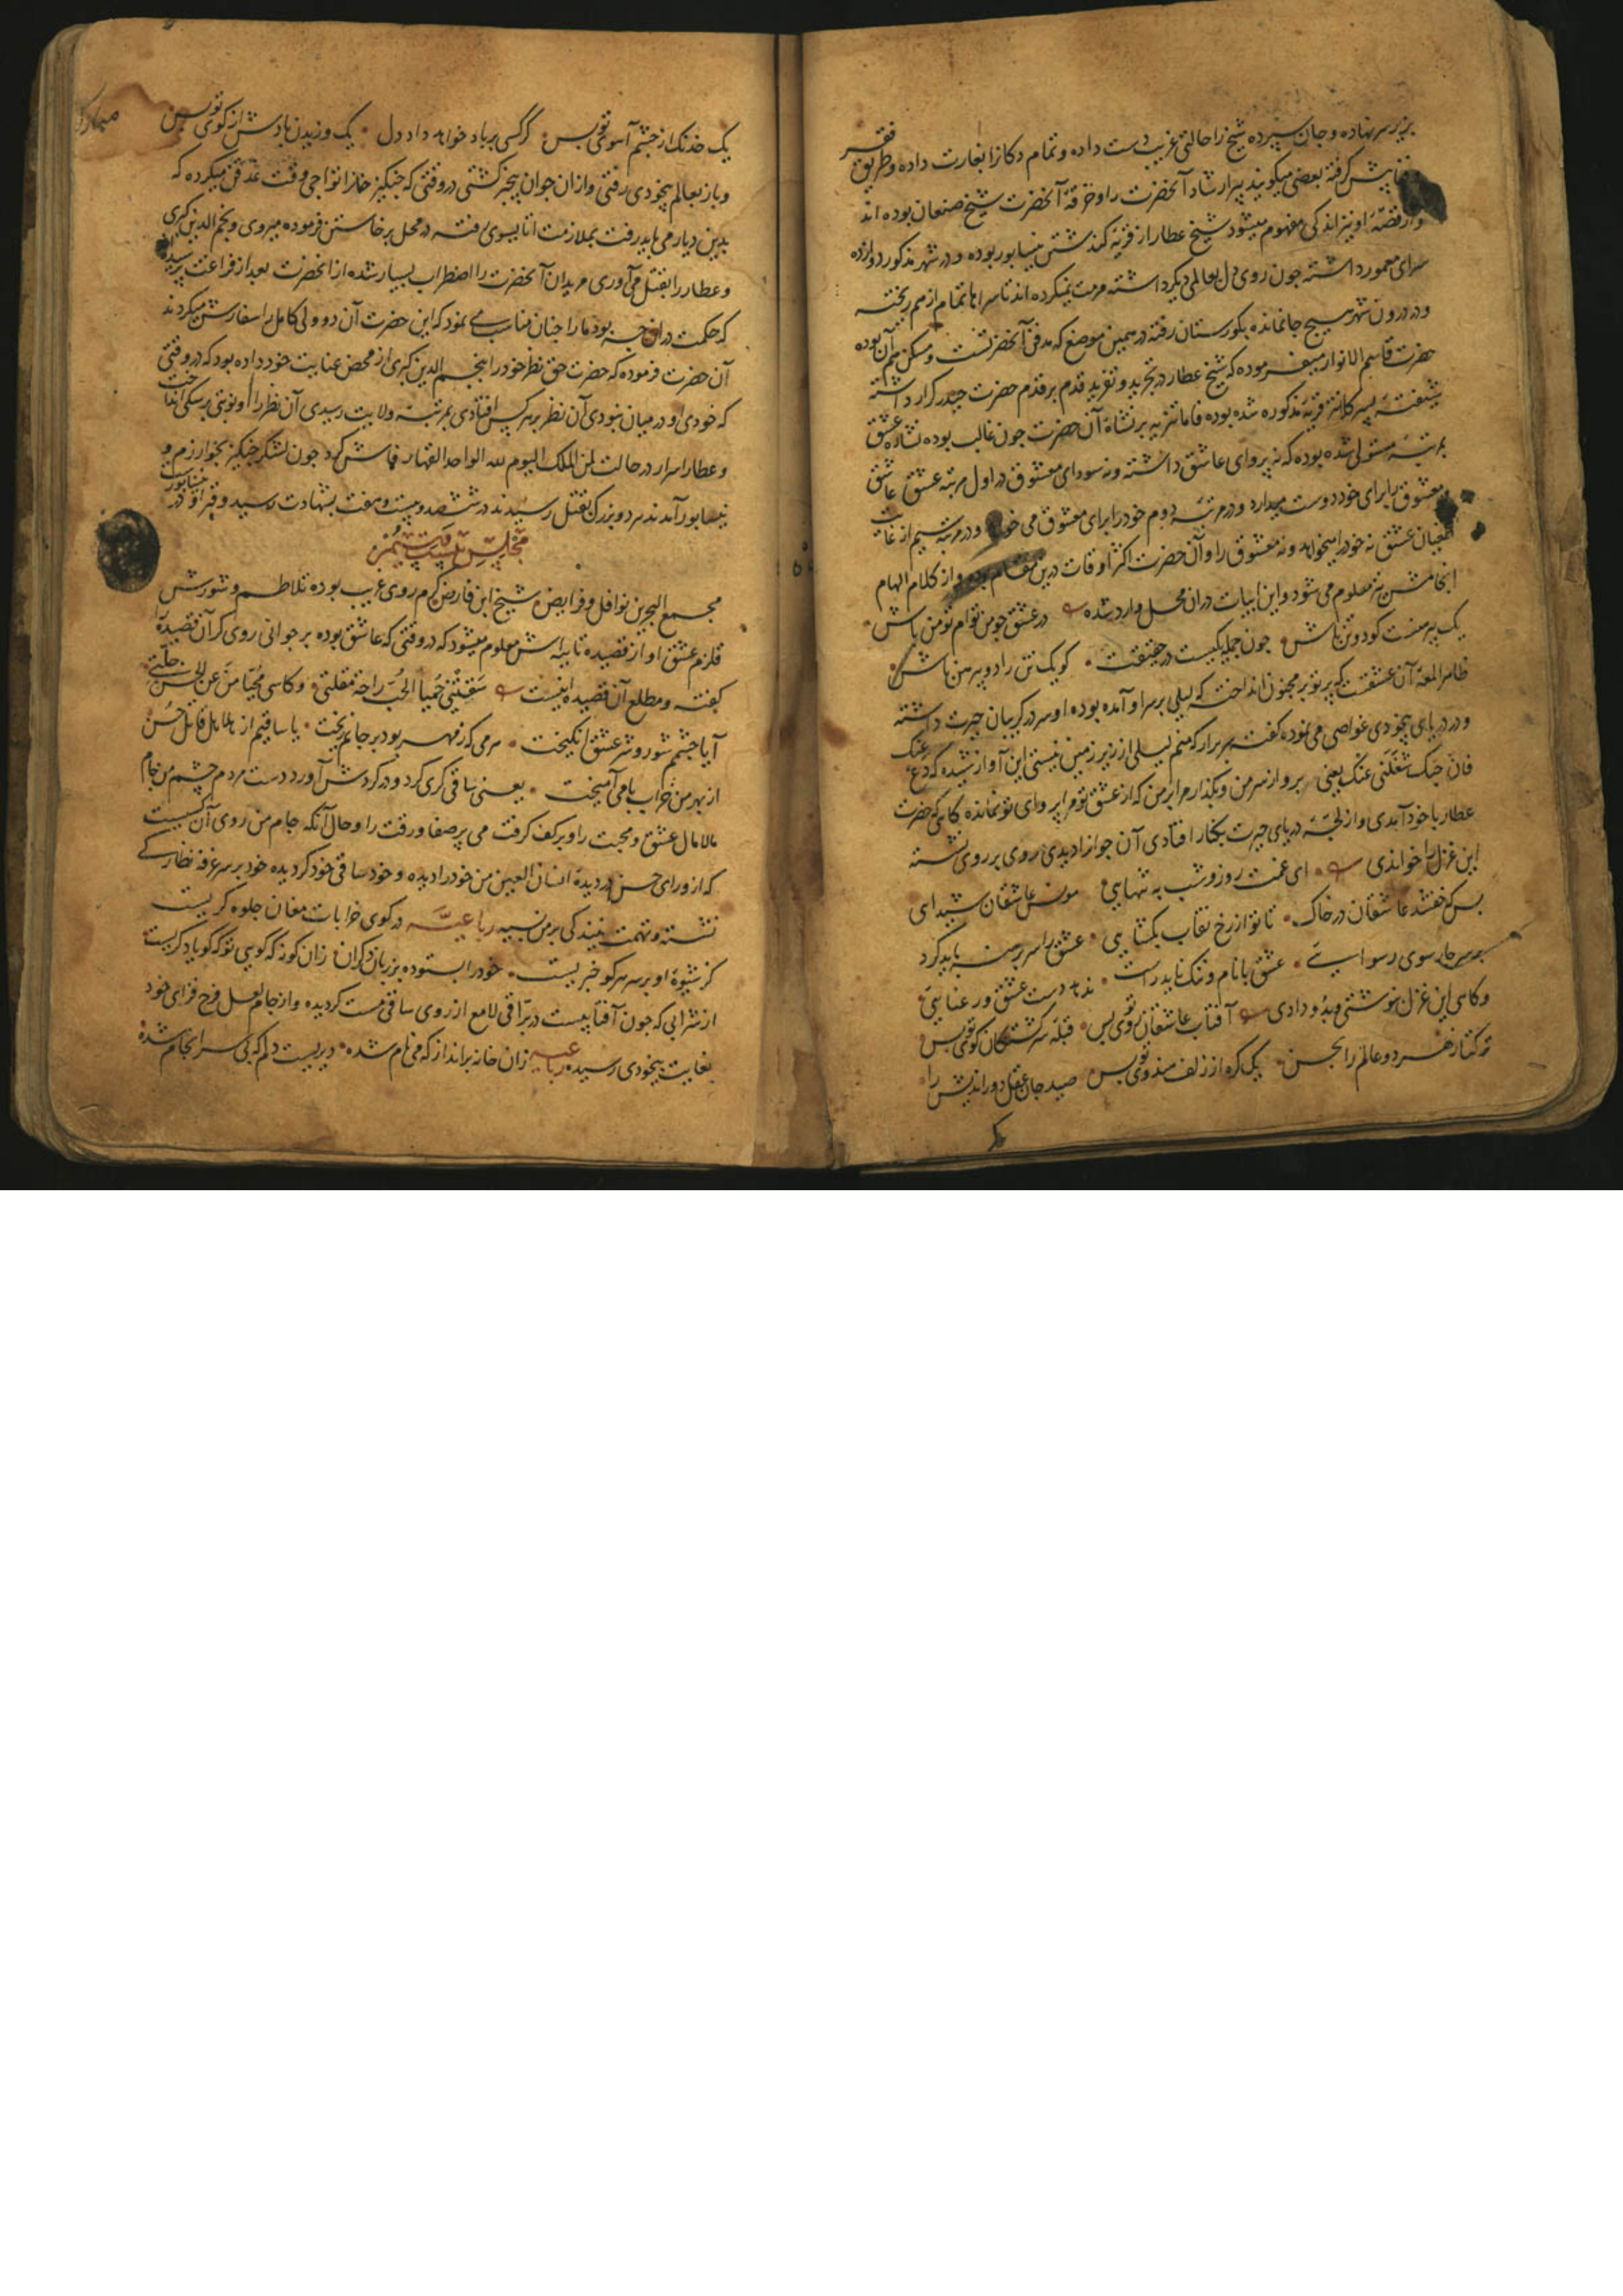 بزیر سر نهاده و جان سپرده شیخ را حالتی غریب دست داده و تمام دکانرا بغارت داده و طریق فقر
پیش کرفته بعضی میکویند پیر ارشاد آنحضرت را و خرقهٔ آنحضرت شیخ صنعان بوده اند
و از قصهٔ او نیز اندکی مفهوم میشود شیخ عطار از قریهٔ کدشتن نیشابور بوده و در شهر مذکور دوازده
سرای معمور داشته چون روی دل بعالمی دیکر داشته مرمت نمیکرده اند تا سراها تمام از هم ریخته
و در درون شهر هیچ جا نمانده بکورستان رفته در همین موضع که مدفن آنحضرتست و مسکن هم آن بوده
حضرت قاسم الانوار میفرموده که شیخ عطار در تجرید و تفرید قدم بر قدم حضرت حیدر کرار داشته
شیفتهٔ پسر کلانتر قریهٔ مذکوره شده بوده فاما تنزیه بر نشاة آن حضرت چون غالب بوده نشاه عشق
بمرتبهٔ مستولی شده بوده که نه پروای عاشق داشته و نه سودای معشوق در اول مرتبه عشق عاشق
معشوق را برای خود دوست میدارد و در مرتبهٔ دوم خود را برای معشوق می خواهد و در مرتبه سیم از غایت
طغیان عشق نه خود را میخواهد و نه معشوق را و آن حضرت اکثر اوقات درین مقام بوده و از کلام الهام
انجامش نیز معلوم می شود و این ابیات دران محل وارد شده در عشق چو من توام تو من باش
یک پیرهنست کو دو تن باش چون جمله یکیست در حقیقت کو یک تن را دو پیرهن باش
ظاهرا لمعهٔ آن عشقست که پرتو بر مجنون انداخته که لیلی بر سر او آمده بوده او سر در کریبان حیرت داشته
و در دریای بیخودی غواصی می نموده کفته سر برار که منم لیلی از زیر زمین نیستی این آواز شنیده که دع عنک
فان حبک شغلنی عنک یعنی برو از سر من و بکذار مرا بر من که از عشق تو مرا پروای تو نمانده کاهی که حضرت
عطار با خود آمدی و از لجهٔ دریای حیرت بکنار افتادی آن جوانرا دیدی روی بر روی نشسته
این غزل را خواندی ای غمت روز و شب به تنهایی مونس عاشقان شیدایی
بس که خفتند عاشقان در خاک تا تو از رخ نقاب بکشایی عشق را سر برهنه باید کرد
بر سر چار سوی رسوایی عشق با نام و ننک ناید راست ندهد دست عشق و رعنایی
و کاهی این غزل نوشتی و بدو دادی آفتاب عاشقان روی تو بس قبلهٔ سرکشتکان کوی تو بس
ترکتاز هر دو عالم را بحسن یک کره از زلف هندوی تو بس صید جان عقل دور اندیش را
یک
یک خدنک از چشم آهوی تو بس کر کسی بر باد خواهد داد دل یک وزیدن بادش از کوی تو بس
و باز بعالم بیخودی رفتی و ازان جوان بیخبر کشتی در وقتی که چنکیز خانرا نواجی وقت غدقن میکرده که
بدین دیار می باید رفت بملازمت اتا یسوی رفته در محل برخاستن فرموده میروی و نجم الدین کبری
و عطار را بقتل می آوری مریدان آنحضرت را اضطراب بسیار شده از انحضرت بعد از فراغت پرسیده
که حکمت دران چه بود ما را چنان مناسب می نمود که این حضرت آن دو ولی کامل را سفارش میکردند
آن حضرت فرموده که حضرت حق نظر خود را بنجم الدین کبری از محض عنایت خود داده بود که در وقتی
که خودی او در میان نبودی آن نظر بر هر کس افتادی بمرتبهٔ ولایت رسیدی آن نظر را او نوبتی بر سکی انداخت
و عطار اسرار در حالت لمن الملک الیوم لله الواحد القهار فاش کرد چون لشکر چنکیز بخوارزم و
نیشابور آمدند هر دو بزرک بقتل رسیدند در ششصد و بیست و هفت بشهادت رسید و قبر او در نیشابور
مجلس بیست هشتم
مجمع البحرین نوافل و فرایض شیخ ابن فارض کرم روی غریب بوده تلاطم و شورش
قلزم عشق او از قصیده تاییه اش معلوم میشود که در وقتی که عاشق بوده بر جوانی روی کر آن قصیده را
کفته و مطلع آن قصیده اینست سقتنی حمیا الحب راحة مقلتی و کاسی محیا من عن الحسن جلت
آیا چشمم شور و شر عشق انکیخت می که ز مهر بود بر جانم ریخت یا ساقیم از شمایل حسن
از بهر من خراب با می آمیخت یعنی ساقی کری کرد و در کردش آورد دست مردم چشم من جام
مالامال عشق و محبت را و بر کف کرفت می پر صفا و رقت را و حال آنکه جام من روی آن کسیست
که از ورای حسن در دیدهٔ انسان العین من خود را دیده و خود ساقی خود کردیده خود بر سر غرفه نظارکی
نشسته و تهمت بیندکی بر من نسبیه رباعیه در کوی خرابات مغان جلوه کریست
کز شیوهٔ او بر سر هر کو خبریست خود را بستوده بر زبان دکران زان کونه که کویی تو که کویا دکریست
از شرابی که چون آفتابیست در براقی لامع از روی ساقی مست کردیده و از جام لعل فرح فزای خود
بغایت بیخودی رسیده رباعیه زان خانه برانداز که می نام شده دیریست دلم که بی سرانجام شده